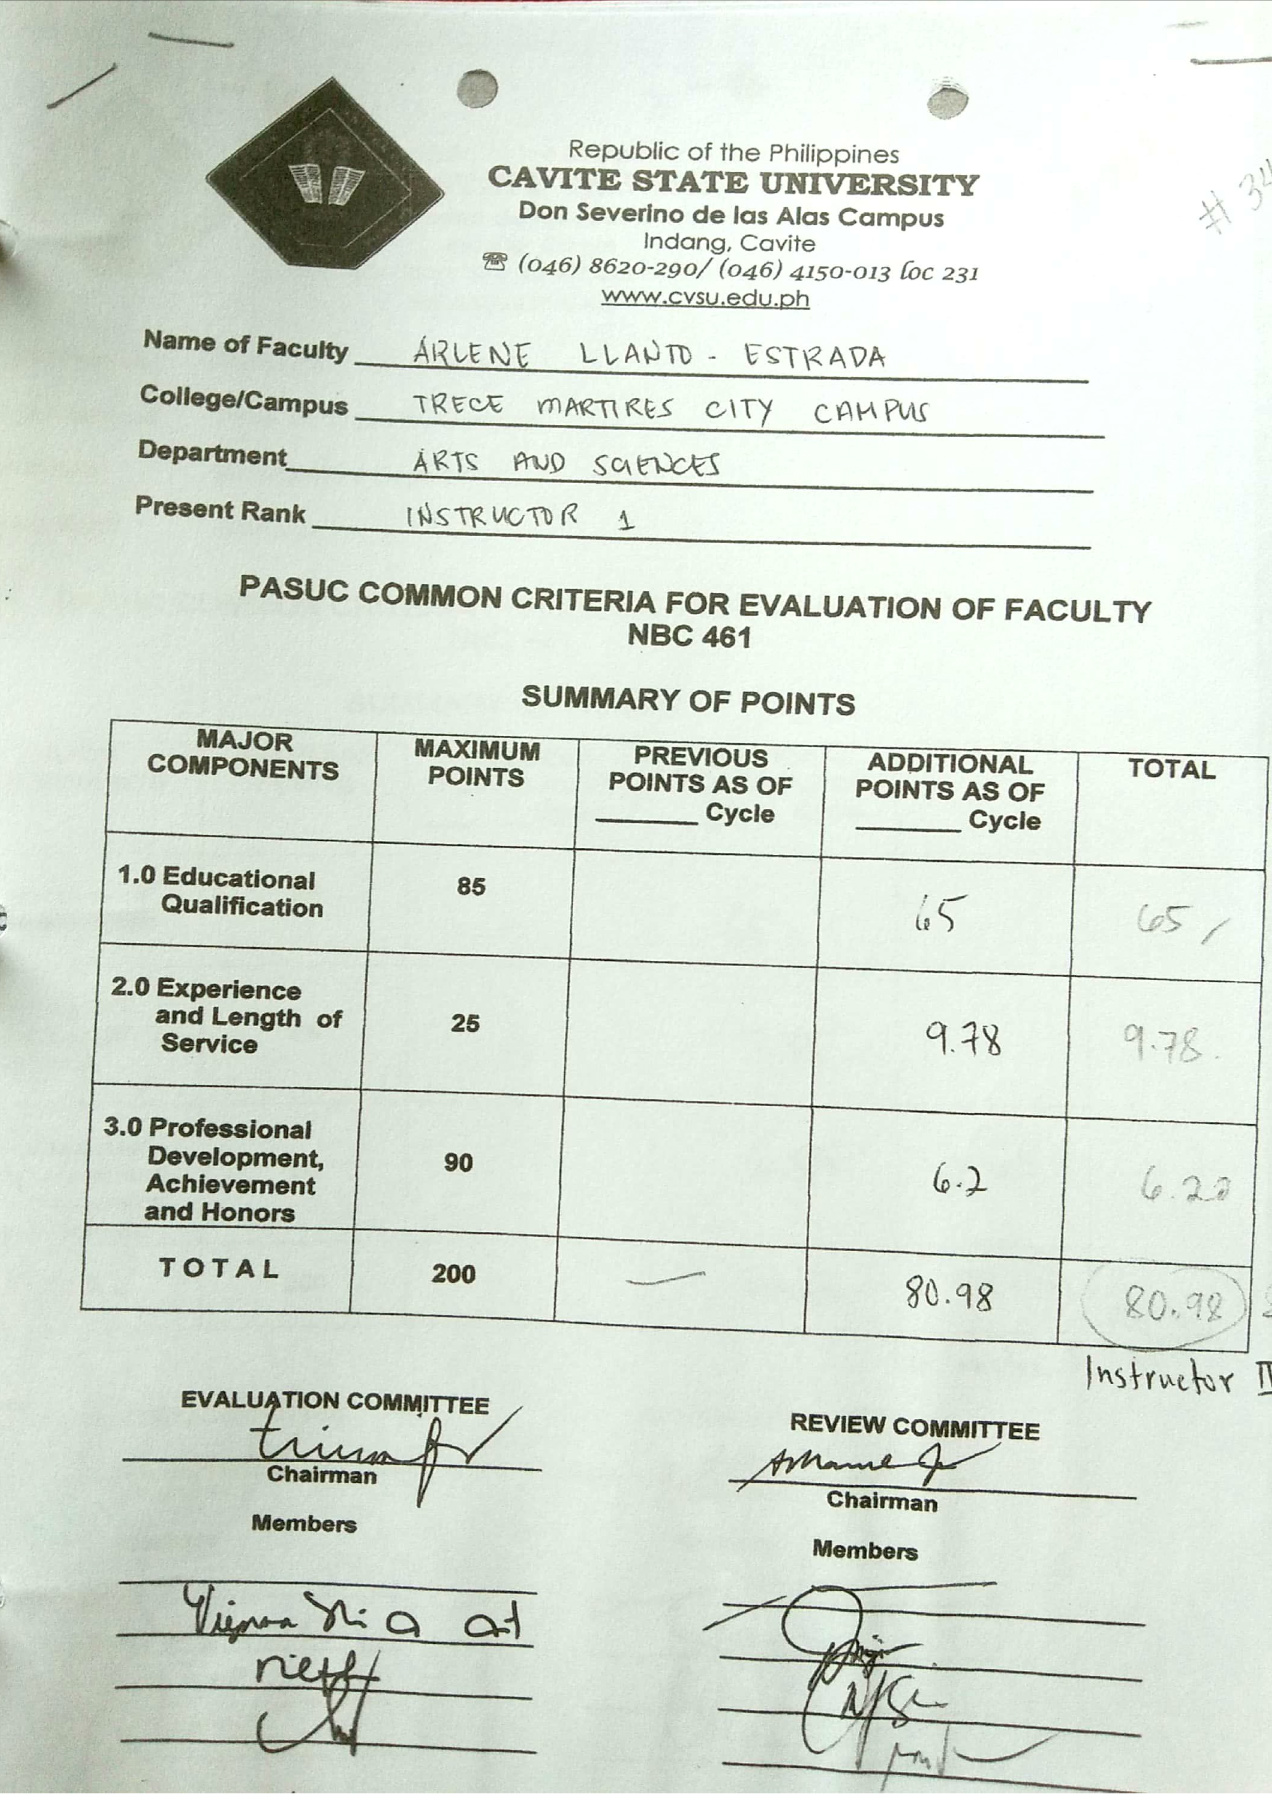 # 34
Republic of the Philippines
CAVITE STATE UNIVERSITY
Don Severino de las Alas Campus
Indang, Cavite
☎ (046) 8620-290/ (046) 4150-013 loc 231
www.cvsu.edu.ph
Name of Faculty ARLENE LLANTO - ESTRADA
College/Campus TRECE MARTIRES CITY CAMPUS
Department ARTS AND SCIENCES
Present Rank INSTRUCTOR 1
PASUC COMMON CRITERIA FOR EVALUATION OF FACULTY
NBC 461
SUMMARY OF POINTS
MAJOR COMPONENTS MAXIMUM POINTS PREVIOUS POINTS AS OF ______ Cycle ADDITIONAL POINTS AS OF ______ Cycle TOTAL
1.0 Educational Qualification 85 65 65
2.0 Experience and Length of Service 25 9.78 9.78
3.0 Professional Development, Achievement and Honors 90 6.2 6.20
TOTAL 200 — 80.98 80.98
Instructor
EVALUATION COMMITTEE
Chairman
Members
REVIEW COMMITTEE
Chairman
Members